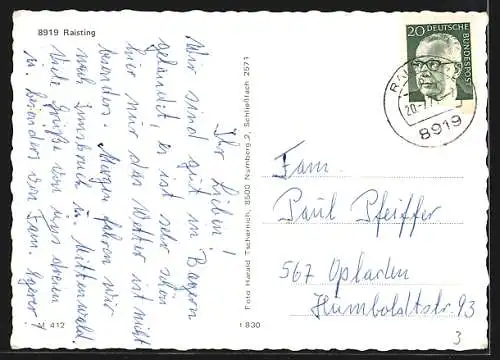 8919 Raisting
Ihr Lieben!
Wir sind gut in Bayern
gelandet, es ist sehr schön
hier nur das Wetter ist nicht
besonders. Morgen fahren wir
nach Innsbruck u. Mittenwald.
Viele Grüße von uns dreien
u. besonders von Fam. Egerer
M 412
Foto Harald Tschernich, 8500 Nürnberg 2, Schließfach 2571
1 830
20 DEUTSCHE BUNDESPOST
8919
Fam.
Paul Pfeiffer
567 Opladen
Humboldtstr. 93
3